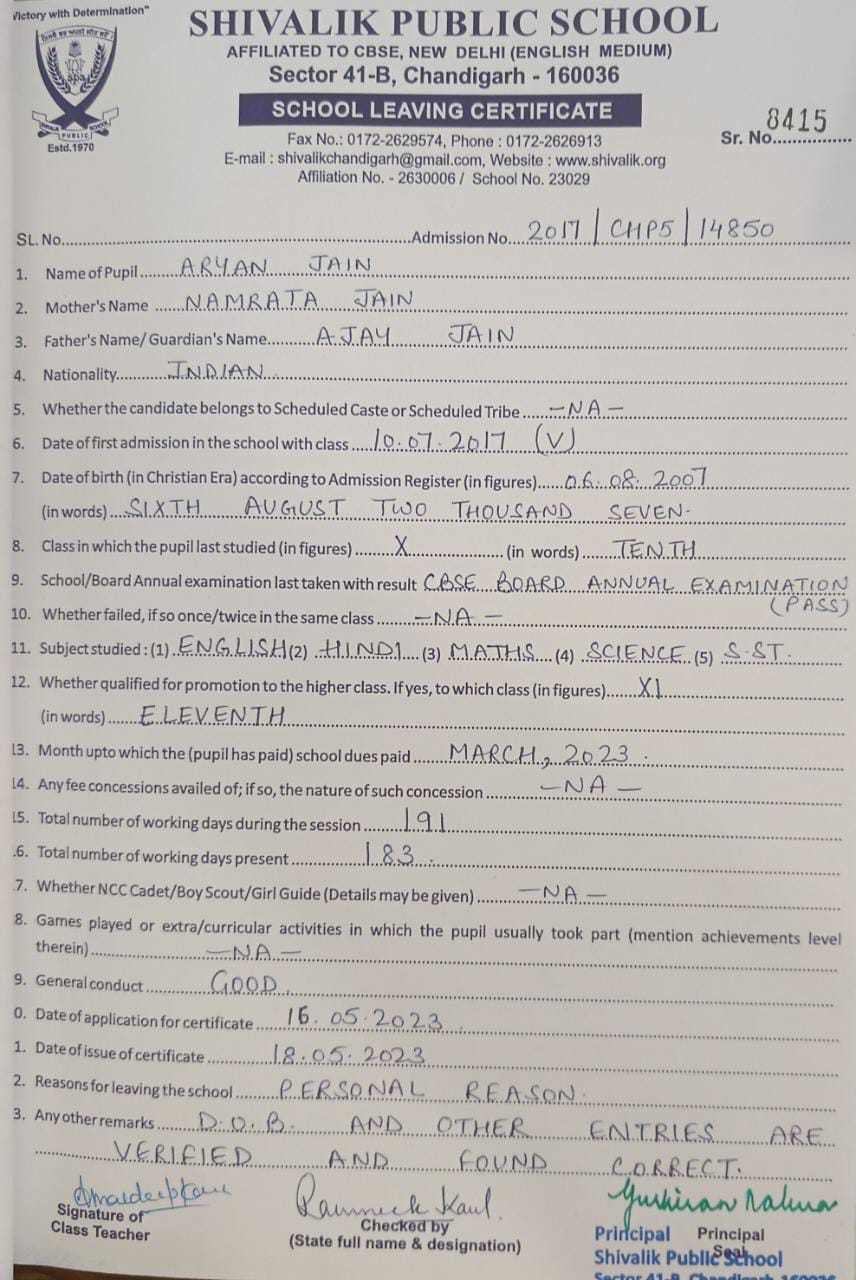 Victory with Determination"
SHIVALIK PUBLIC SCHOOL
AFFILIATED TO CBSE, NEW DELHI (ENGLISH MEDIUM)
Sector 41-B, Chandigarh - 160036
SCHOOL LEAVING CERTIFICATE
SPS
SHIVALIK PUBLIC SCHOOL
Estd.1970
Fax No.: 0172-2629574, Phone : 0172-2626913
E-mail : shivalikchandigarh@gmail.com, Website : www.shivalik.org
Affiliation No. - 2630006 / School No. 23029
Sr. No. 8415
SL. No. Admission No. 2017/CHPS/14850
1. Name of Pupil ARYAN JAIN
2. Mother's Name NAMRATA JAIN
3. Father's Name/ Guardian's Name AJAY JAIN
4. Nationality INDIAN
5. Whether the candidate belongs to Scheduled Caste or Scheduled Tribe -NA-
6. Date of first admission in the school with class 10.07.2017 (V)
7. Date of birth (in Christian Era) according to Admission Register (in figures) 06.08.2007
(in words) SIXTH AUGUST TWO THOUSAND SEVEN.
8. Class in which the pupil last studied (in figures) X (in words) TENTH
9. School/Board Annual examination last taken with result CBSE BOARD ANNUAL EXAMINATION
(PASS)
10. Whether failed, if so once/twice in the same class -NA-
11. Subject studied : (1) ENGLISH (2) HINDI (3) MATHS (4) SCIENCE (5) S.ST.
12. Whether qualified for promotion to the higher class. If yes, to which class (in figures) XI
(in words) ELEVENTH
13. Month upto which the (pupil has paid) school dues paid MARCH, 2023.
14. Any fee concessions availed of; if so, the nature of such concession -NA-
15. Total number of working days during the session 191
.6. Total number of working days present 183.
.7. Whether NCC Cadet/Boy Scout/Girl Guide (Details may be given) -NA-
8. Games played or extra/curricular activities in which the pupil usually took part (mention achievements level
therein) -NA-
9. General conduct GOOD.
0. Date of application for certificate 16.05.2023.
1. Date of issue of certificate 18.05.2023
2. Reasons for leaving the school PERSONAL REASON.
3. Any other remarks D.O.B. AND OTHER ENTRIES ARE
VERIFIED AND FOUND CORRECT.
Signature of
Class Teacher
Checked by
(State full name & designation)
Principal Principal
Seal
Shivalik Public School
Sector 41-B, Chandigarh 160036